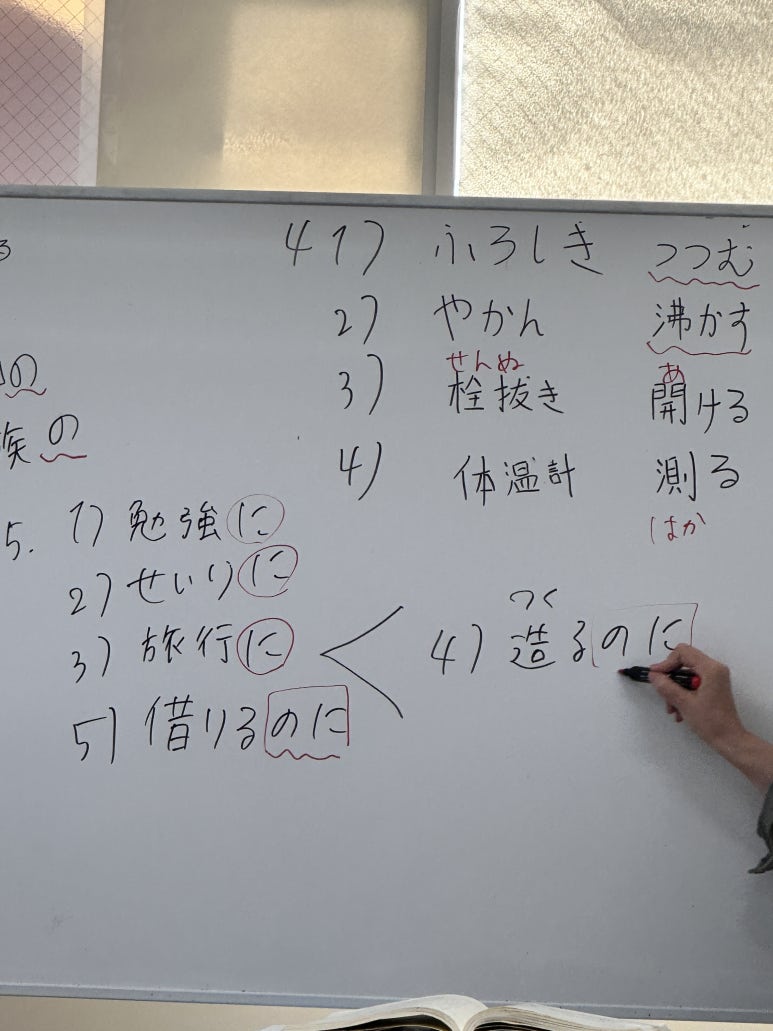 る
の
族の
4 1) ふろしき つつむ
2) やかん 沸かす
せんぬ あ
3) 栓抜き 開ける
4) 体温計 測る
はか
5. 1) 勉強に
2) せいりに
3) 旅行に
5) 借りるのに
つく
4) 造るのに